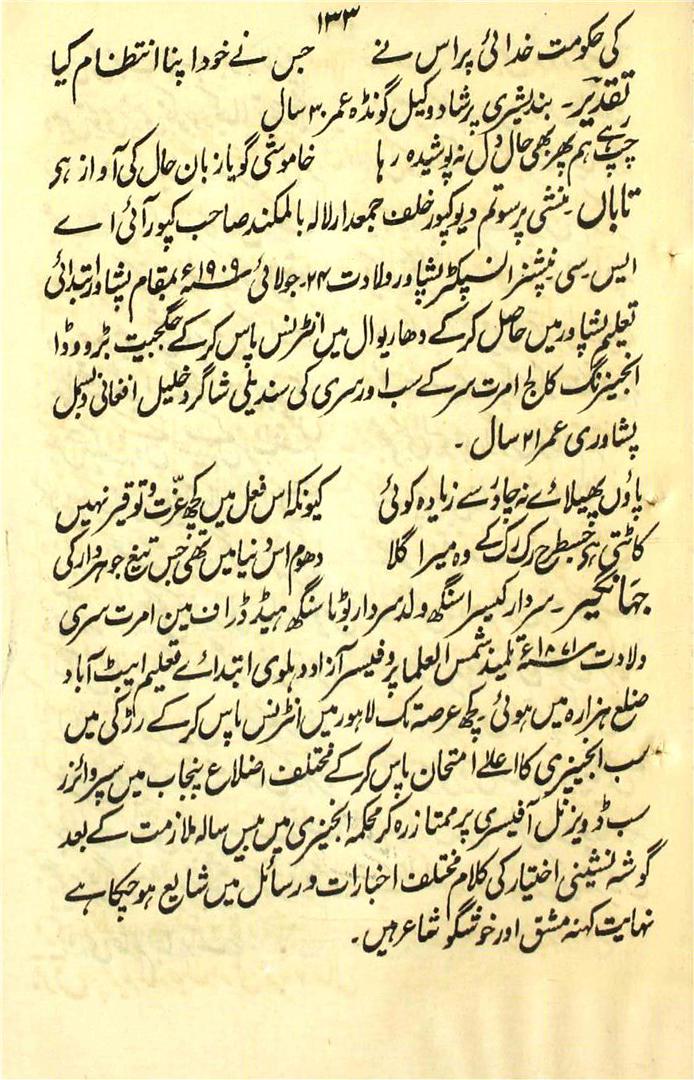 ۱۳۳
کی حکومت خدائی پر اس نے جس نے خود اپنا انتظام کیا
تقدیر۔ بندیشری پرشاد وکیل گونڈہ عمر ۳۰ سال
چپ رہے ہم پھر بھی حال دل نہ پوشیدہ رہا خاموشی گویا زبان حال کی آواز ہے
تاباں۔ منشی پرسوتم دیو کپور خلف جمعدار لالہ بالمکند صاحب کپور آئی اے
ایس۔ سی پنشنر انسپکٹر پشاور ولادت ۲۴۔ جولائی ۱۹۰۹ء بمقام پشاور ابتدائی
تعلیم پشاور میں حاصل کر کے دھاریوال میں انٹرنس پاس کر کے جگجیت بڑووڈا
انجینرنگ کالج امرت سر کے سب اورسری کی سند لی شاگرد خلیل افغانی و بسمل
پشاوری عمر ۲۱ سال ۔
پاؤں پھیلائے نہ چادر سے زیادہ کوئی کیونکہ اس فعل میں کچھ عزّت و توقیر نہیں
کاٹتی ہے جسطرح رک رک کے وہ میرا گلا دھوم اس دنیا میں تھی جس تیغ جوہردار کی
جہانگیر۔ سردار کیسرا سنگھ ولد سردار بوٹا سنگھ ہیڈ ڈرافمین امرت سری
ولادت ۱۸۷۱ء تلمیذ شمس العلما پروفیسر آزاد دہلوی ابتدائے تعلیم ایبٹ آباد
ضلع ہزارہ میں ہوئی۔ کچھ عرصۃ تک لاہور میں انٹرنس پاس کر کے رڑکی میں
سب انجینری کا اعلےٰ امتحان پاس کر کے مختلف اضلاع پنجاب میں سپروائزر
سب ڈویزنل آفیسری پر ممتاز رہ کر محکمہ انجینری میں بیس سالہ ملازمت کے بعد
گوشہ نشینی اختیار کی کلام مختلف اخبارات و رسائل میں شایع ہو چکا ہے
نہایت کہنہ مشق اور خوشگو شاعر ہیں۔